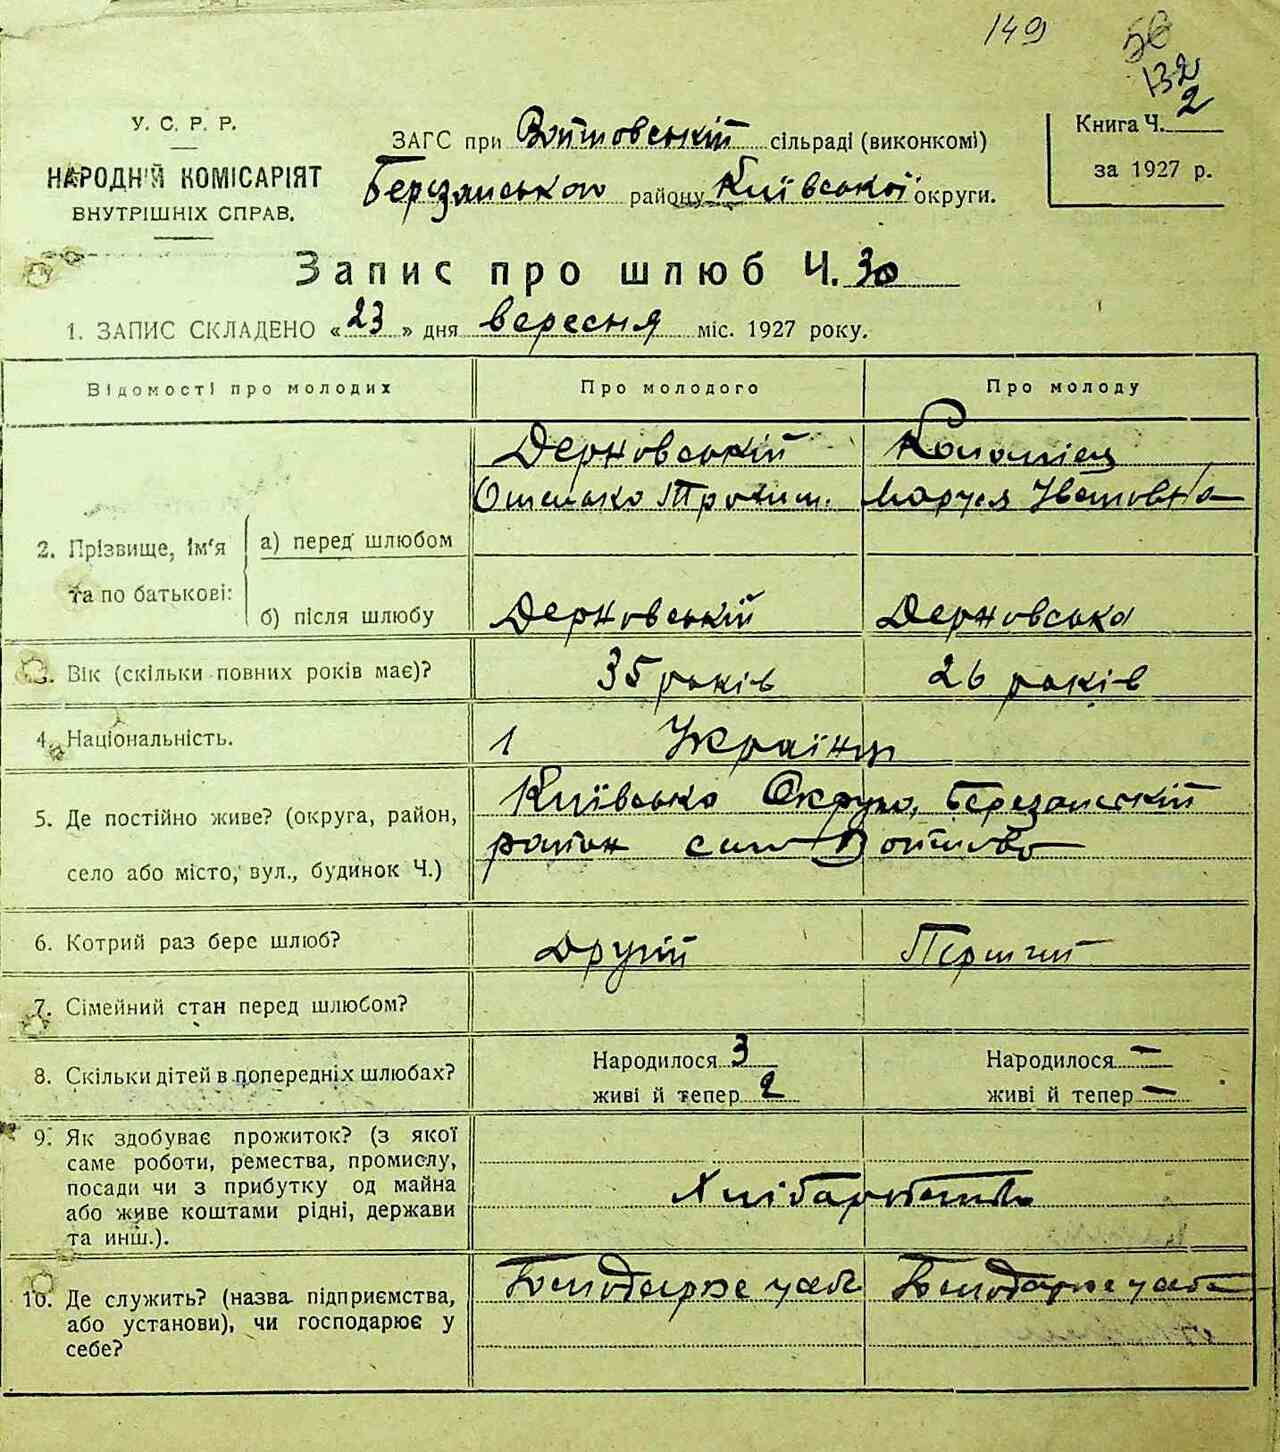 149
50
132
У. С. Р. Р.
НАРОДНІЙ КОМІСАРІЯТ
ВНУТРІШНІХ СПРАВ.
ЗАГС при Войтовській сільраді (виконкомі)
Березанського району Київської округи.
Книга Ч. 2
за 1927 р.
Запис про шлюб Ч. 30
1. ЗАПИС СКЛАДЕНО «23» дня вересня міс. 1927 року.
Відомості про молодих
Про молодого
Про молоду
2. Прізвище, ім'я та по батькові:
а) перед шлюбом
Дерновській
Омелько Трохим.
Коломієц
Маруся Івановна
б) після шлюбу
Дерновській
Дерновська
3. Вік (скільки повних років має)?
35 років
26 років
4. Національність.
1 Українци
5. Де постійно живе? (округа, район,
село або місто, вул., будинок Ч.)
Київська Округа, Березанський
район село Войтово
6. Котрий раз бере шлюб?
Другій
Перший
7. Сімейний стан перед шлюбом?
8. Скільки дітей в попередніх шлюбах?
Народилося 3
живі й тепер 2
Народилося –
живі й тепер –
9. Як здобуває прожиток? (з якої
саме роботи, ремества, промислу,
посади чи з прибутку од майна
або живе коштами рідні, держави
та инш.).
Хліборобство
10. Де служить? (назва підприємства,
або установи), чи господарює у
себе?